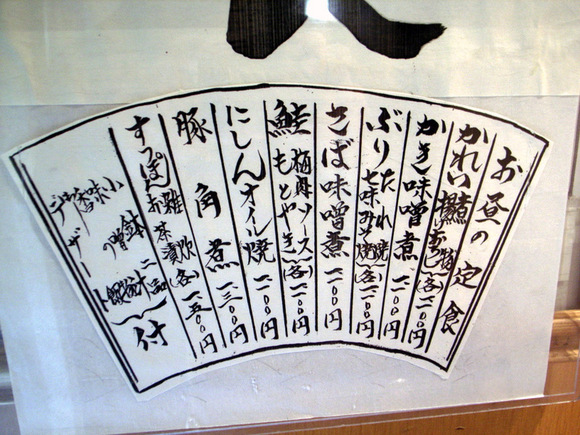 お昼の定食
かれい 煮おろし (各)一二〇〇円
かき味噌煮 一二〇〇円
ぶり たれ焼 七味みそ焼 (各)一二〇〇円
さば味噌煮 一一〇〇円
鮭 柚庵ソース もとやき (各)一二〇〇円
にしんオイル焼 一二〇〇円
豚角煮 一三〇〇円
すっぽん 雑炊 お茶漬 (各)一五〇〇円
小鉢二品
味噌
香の
デザート
付